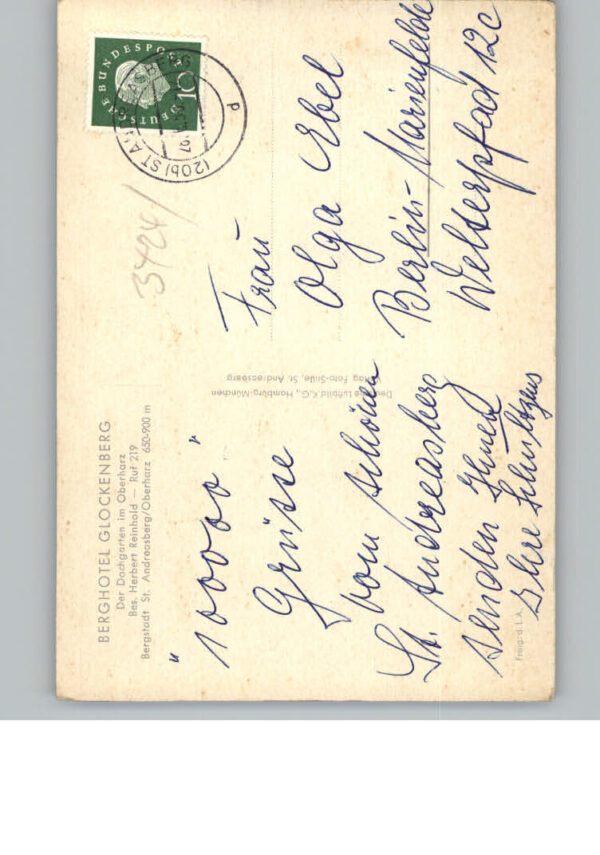 BERGHOTEL GLOCKENBERG
Der Dachgarten im Oberharz
Bes. Herbert Reinhold — Ruf 219
Bergstadt St. Andreasberg/Oberharz 650-900 m
"10000"
Grüsse
vom schönen
St. Andreasberg
senden Ihnen
Ihre
Freig. d. L.A.
Deutsche Luftbild K.G., Hamburg-München
Verlag Foto-Snile, St. Andreasberg
DEUTSCHE BUNDESPOST
10
(20b) ST. ANDREASBERG
d
3424/
Frau
Olga Ebel
Berlin-Marienfelde
Welserpfad 12c